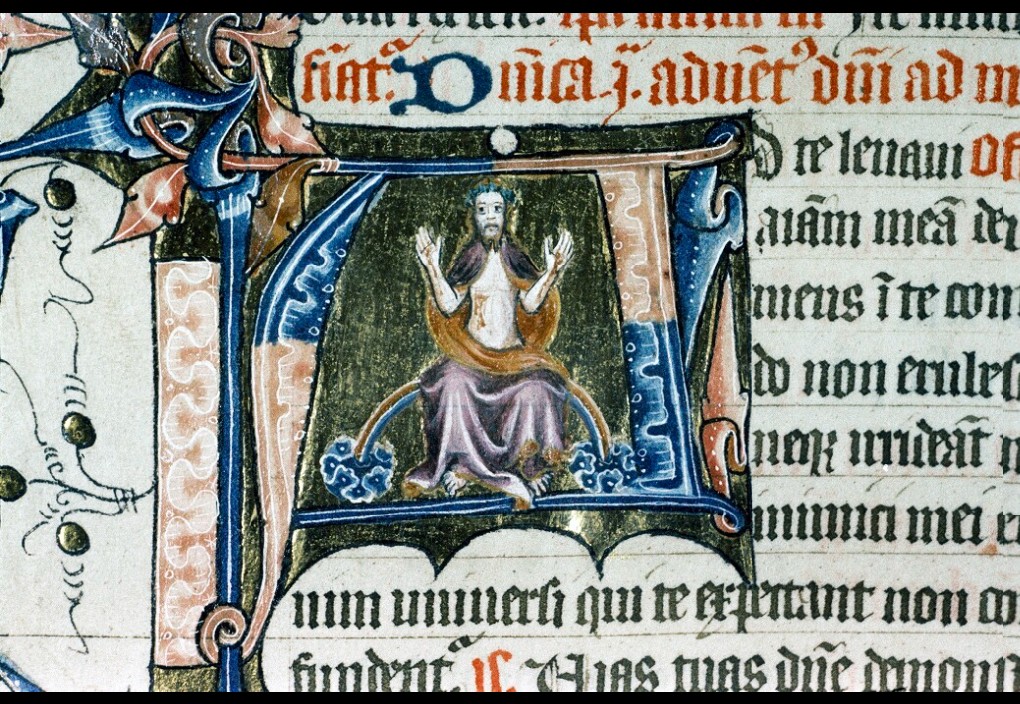 Dn̄ica .j. aduēt᾽ dn̄i ad m
Ad te leuaui Of
aīam meā deu
meus ī te con
do non erubes
neqꝫ irrideāt
inimici mei e
nim uniuersi qui te expectant non co
fundent᷑ ps. Uias tuas dn̄e demonst